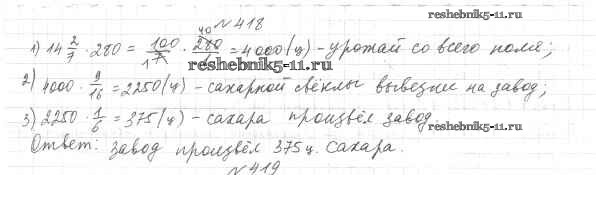 № 418
reshebnik5-11.ru
1) 14 2/7 · 280 = 100/7 · 280 = 4000 (ц) – урожай со всего поля; 40 1
reshebnik5-11.ru
2) 4000 · 9/16 = 2250 (ц) – сахарной свёклы вывезли на завод;
3) 2250 · 1/6 = 375 (ц) – сахара произвёл завод.
reshebnik5-11.ru
Ответ: завод произвёл 375 ц. сахара.
№ 419